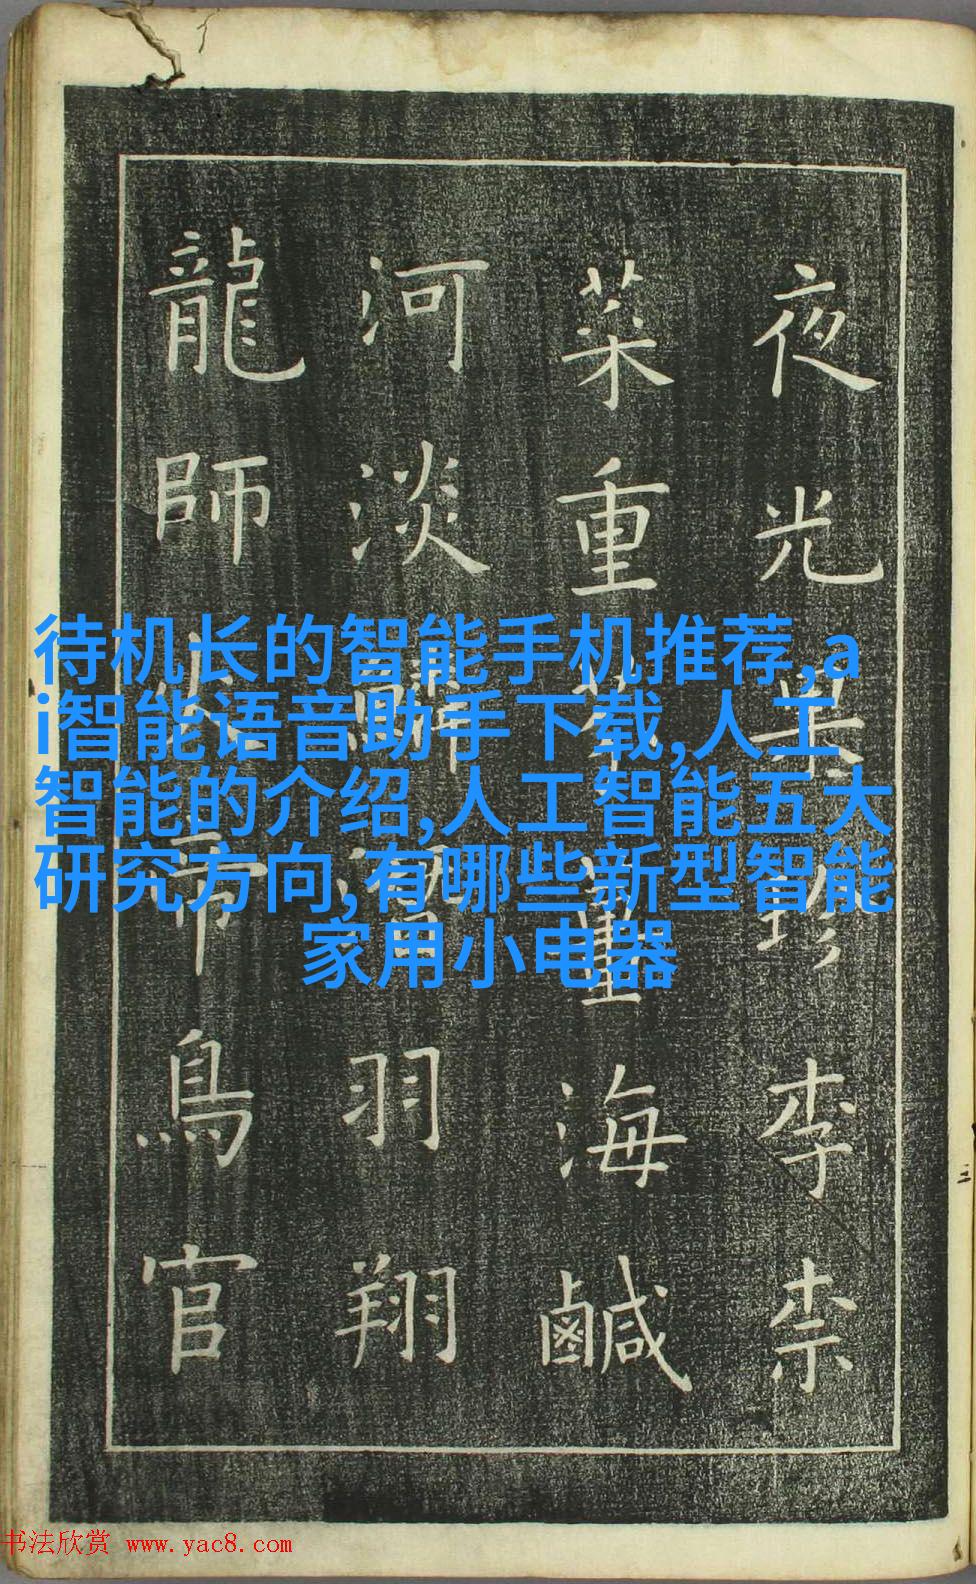 夜光果珍李柰
菜重芥薑海鹹
河淡鱗潛羽翔
龍師火帝鳥官
待机长的智能手机推荐,a
i智能语音助手下载,人工
智能的介绍,人工智能五大
研究方向,有哪些新型智能
家用小电器
书法欣赏 www.yac8.com